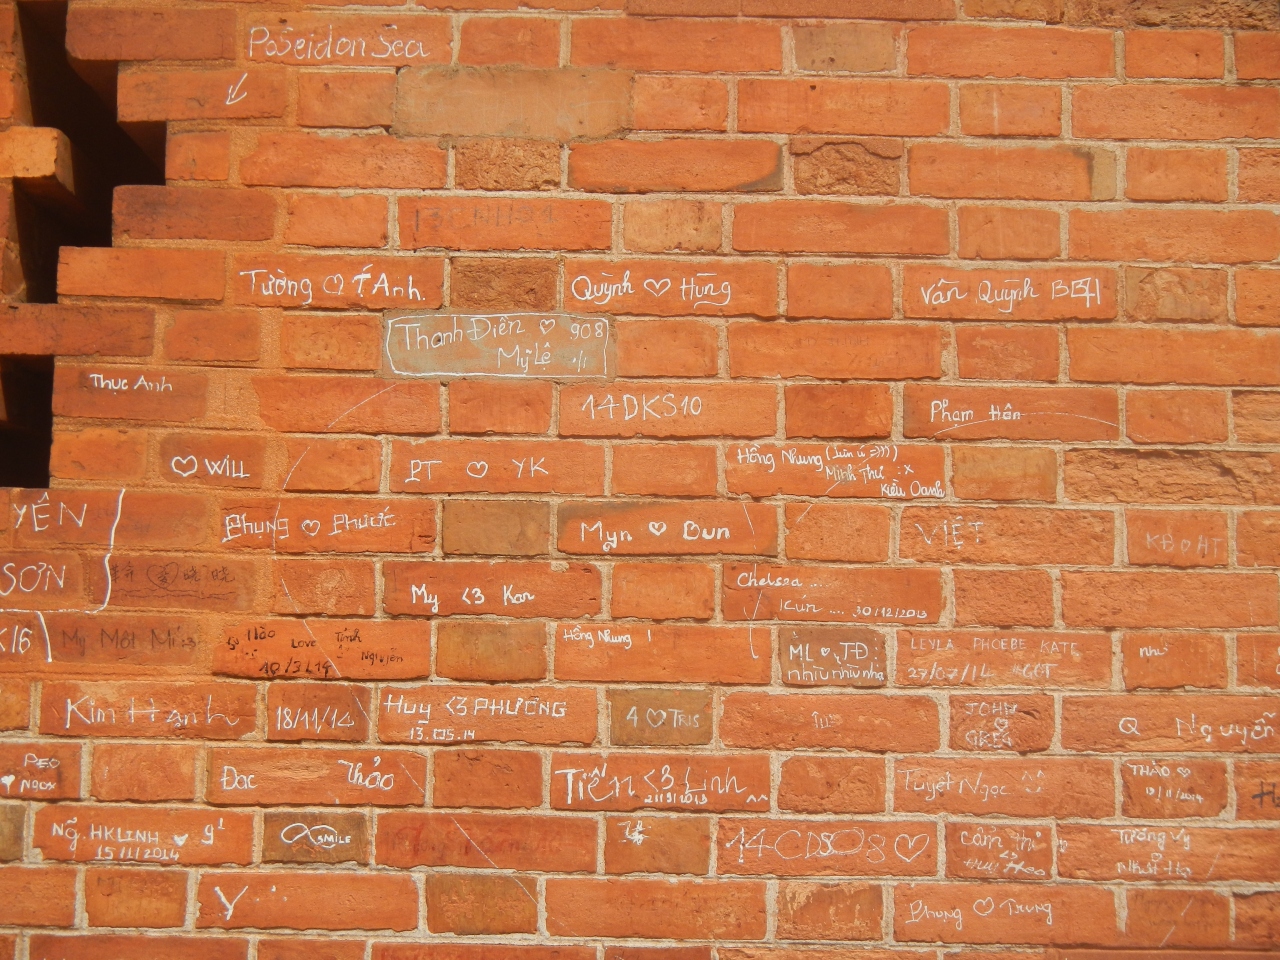 Poseidon Sea
Tường ♡ T Anh.
Quỳnh ♡ Hưng
Vân Quỳnh
Thanh Điền ♡ 908
Mỹ Lệ
Thục Anh
14DKS10
Phạm Hân
♡ WILL
PT ♡ YK
Hồng Nhung
Minh Thư :x
Kiều Oanh
YÊN
Phụng ♡ Phước
Myn ♡ Bun
VIỆT
KB ♡ HT
SƠN
My <3 Kan
Chelsea ...
Kún .... 30/12/2013
K16
Hảo Love Tình
Nguyễn
Hồng Nhung !
ML ♡ TĐ
nhìu nhìu nha
LEYLA PHOEBE KATE
27/07/14
như
Kim Hạnh
18/11/14
Huy <3 PHƯƠNG
13.05.14
A ♡ TRIS
JOHN
Q Nguyễn
PEO
♥ NGOX
Đạc Thảo
Tiến <3 Linh
21/9/2013 ^^
Tuyết Ngọc
THẢO ♡
Ng. HKLINH ♥ g'
15/11/2014
SMILE
14CDSO8 ♡
Cẩm Thi
<3
Tường Vy
Phụng ♡ Trung